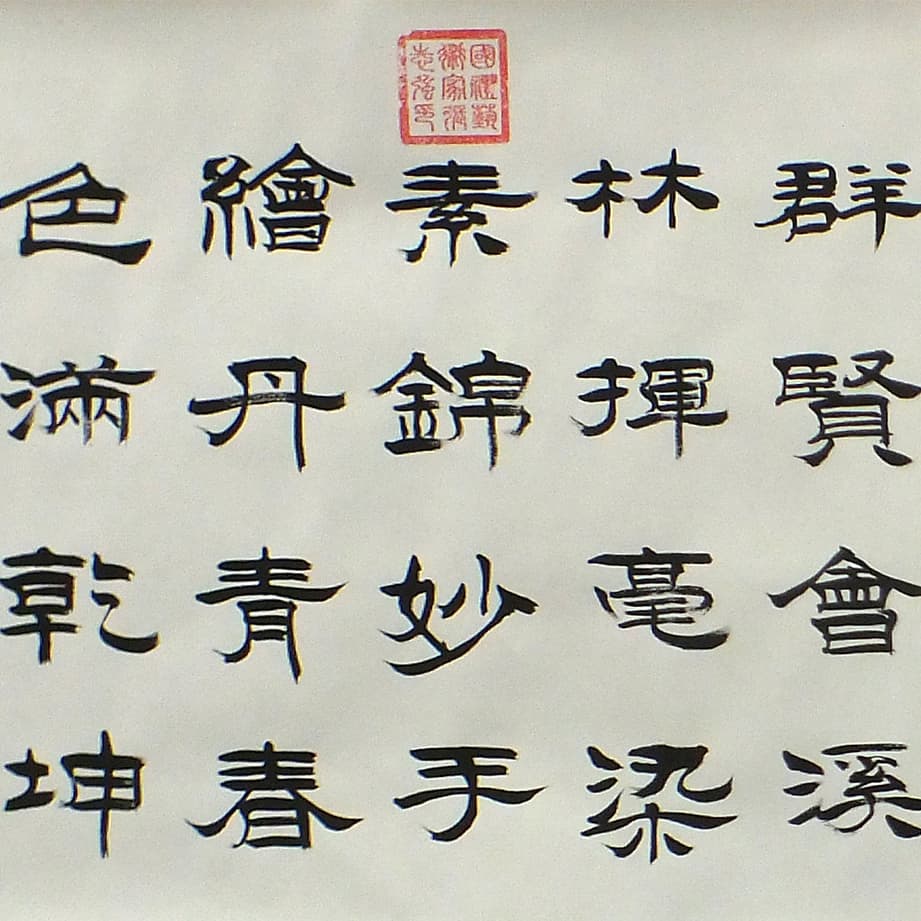 群賢會溪
林揮毫染
素錦妙手
繪丹青春
色滿乾坤
國禮藝
術家張
志強印